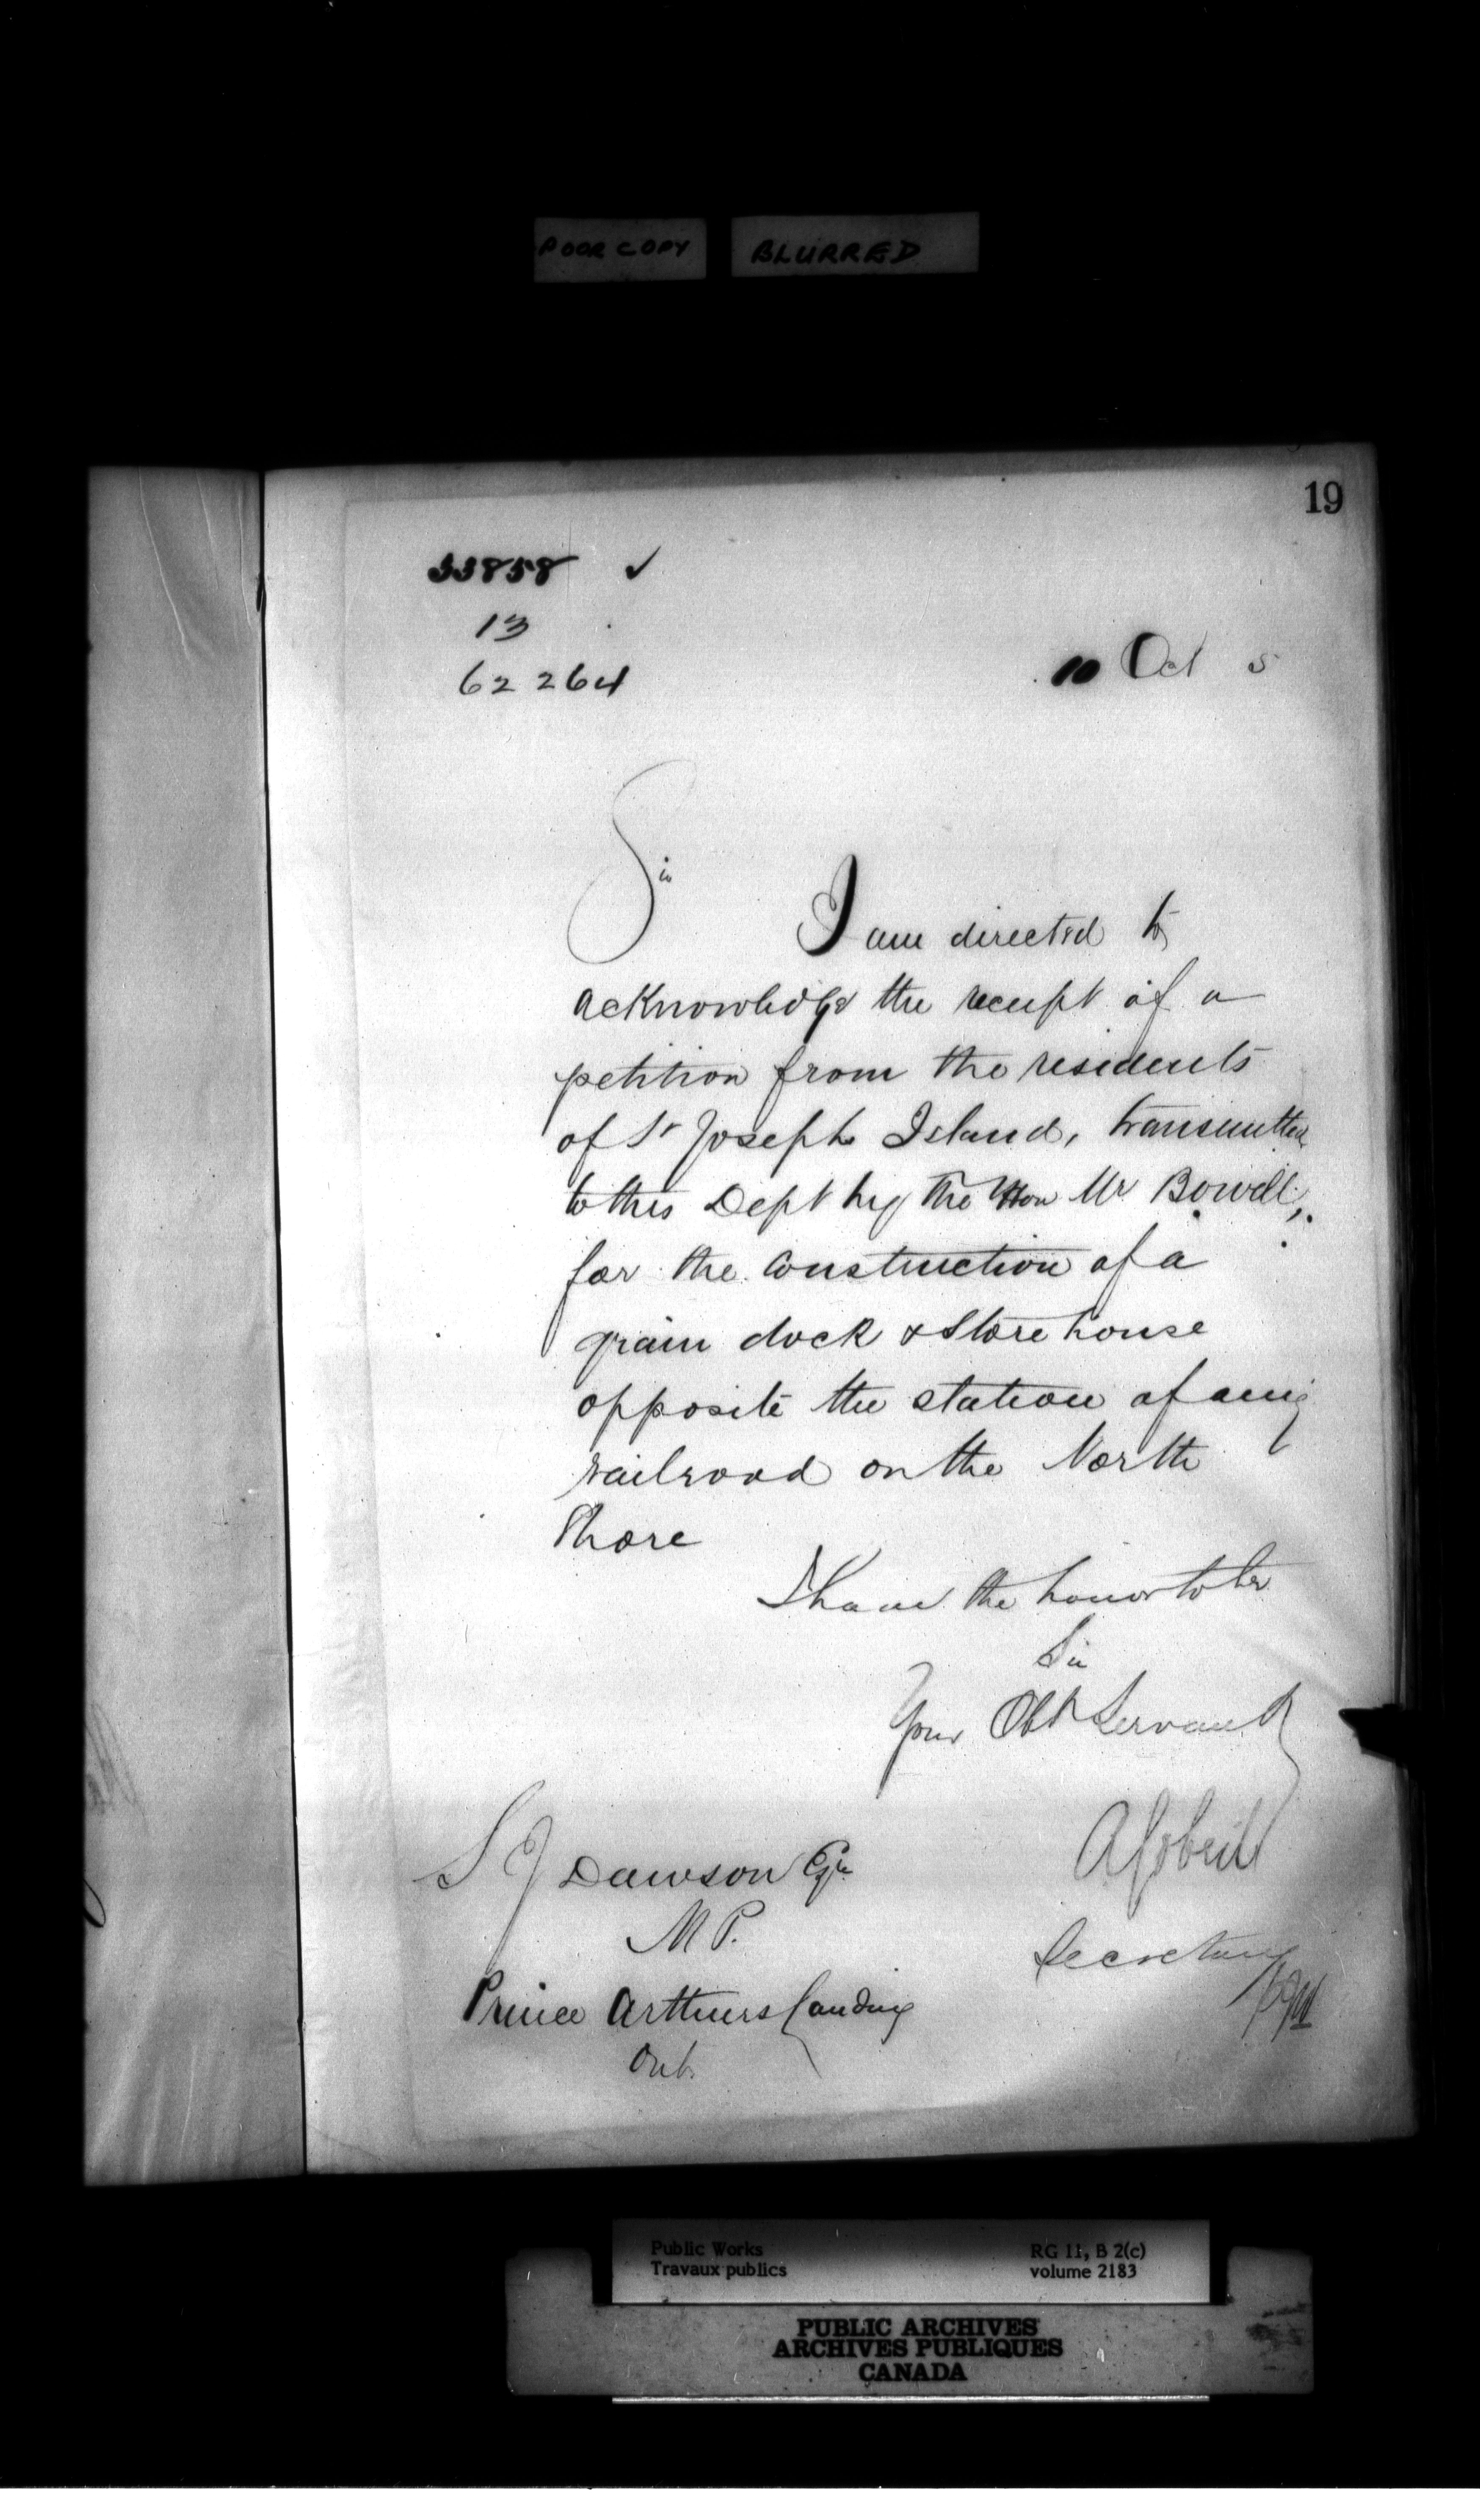 POOR COPY BLURRED
19
33858 ✓
13
62264
10 Oct 5
Sir
I am directed to
acknowledge the receipt of a
petition from the residents
of St Joseph Island, transmitted
to this Dept by the Hon Mr Bowell,
for the construction of a
grain dock & Store house
opposite the station of any
railroad on the North
Shore
I have the honor to be
Sir
Your Obt Servant
A Gobeil
Secretary
S J Dawson Esqr
M P.
Prince Arthurs Landing
Ont.
Public Works
Travaux publics
RG 11, B 2(c)
volume 2183
PUBLIC ARCHIVES
ARCHIVES PUBLIQUES
CANADA